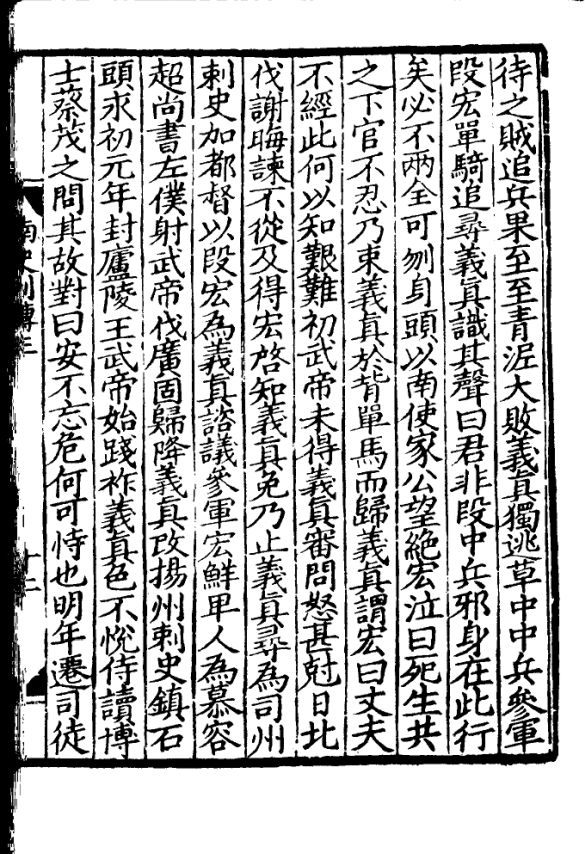 待之賊追兵果至至青泥大敗義真獨逃草中中兵參軍
段宏單騎追尋義真識其聲曰君非段中兵邪身在此行
矣必不兩全可刎身頭以南使家公望絶宏泣曰死生共
之下官不忍乃束義真於背單馬而歸義真謂宏曰丈夫
不經此何以知艱難初武帝未得義真審問怒甚尅日北
伐謝晦諫不從及得宏啓知義真免乃止義真尋為司州
刺史加都督以段宏為義真諮議參軍宏鮮卑人為慕容
超尚書左僕射武帝伐廣固歸降義真改揚州刺史鎮石
頭永初元年封廬陵王武帝始踐祚義真色不悅侍讀博
士蔡茂之問其故對曰安不忘危何可恃也明年遷司徒
南史列傳三
十二